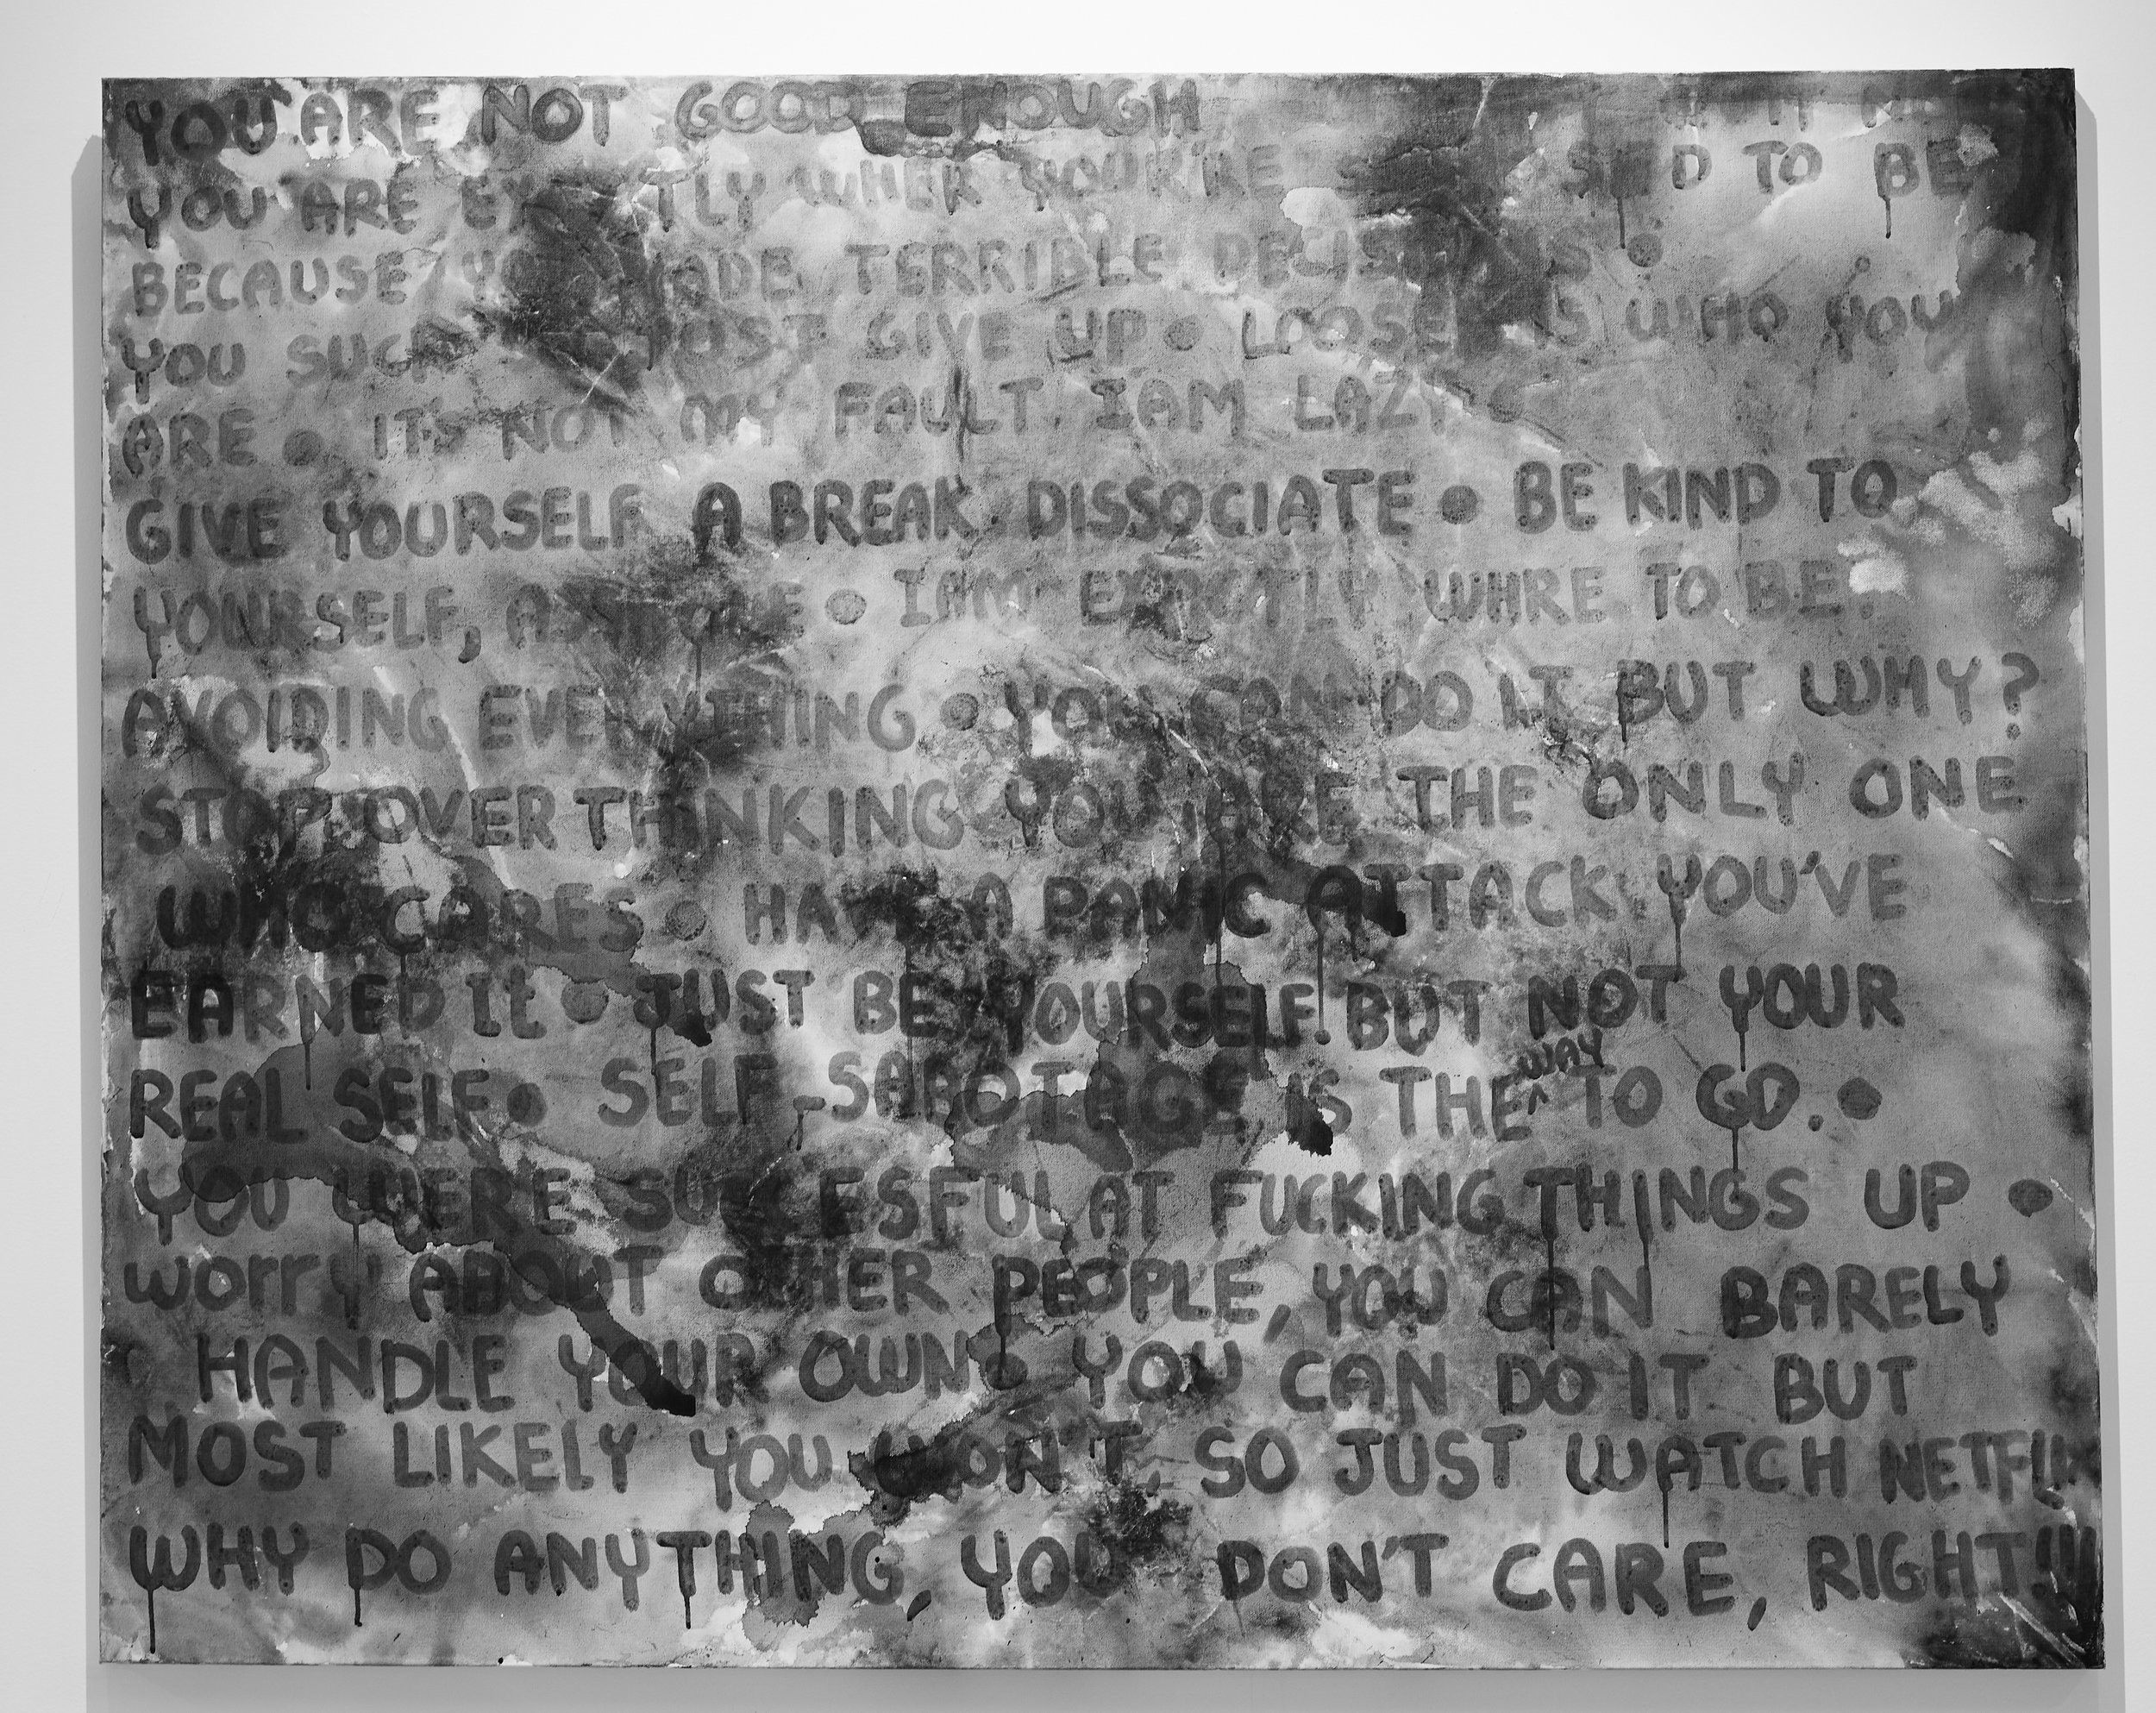 YOU ARE NOT GOOD ENOUGH
YOU ARE TLY WHER YOUR'RE TO BE
BECAUSE TERRIBLE
YOU SUCK GIVE UP • IS WHO YOU
ARE • IT'S NOT MY FAULT I AM LAZY •
GIVE YOURSELF A BREAK. DISSOCIATE • BE KIND TO
YOURSELF, • I AM EXACTLY WHRE TO BE.
AVOIDING EVERYTHING • YOU CAN DO IT BUT WHY?
STOP OVERTHINKING YOU ARE THE ONLY ONE
WHO CARES • HAVE A PANIC ATTACK YOU'VE
EARNED It • JUST BE YOURSELF. BUT NOT YOUR
REAL SELF • SELF-SABOTAGE IS THE ^WAY TO GO. •
YOU WERE SUCCESFUL AT FUCKING THINGS UP •
worry ABOUT OTHER PEOPLE, YOU CAN BARELY
HANDLE YOUR OWN • YOU CAN DO IT BUT
MOST LIKELY YOU WON'T. SO JUST WATCH
WHY DO ANYTHING, YOU DON'T CARE, RIGHT!!!